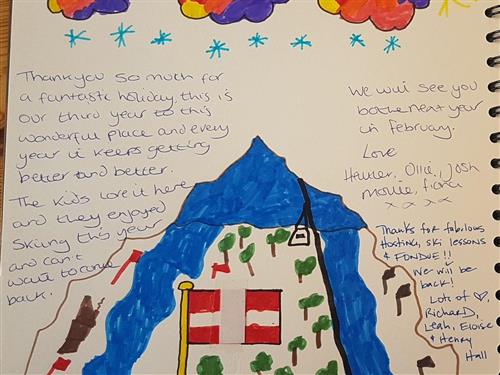 Thankyou so much for
a fantastic holiday, this is
our third year to this
wonderful place and every
year it keeps getting
better and better.
The kids love it here
and they enjoyed
Skiing this year
and can't
want to come
back.
We will see you
both next year
in February.
Love
Heather, Ollie, Josh
Mollie, Fiona
x x x x
Thanks for fabulous
Hosting, ski lessons
& FONDUE!!
We will be
back!
Lots of ♡,
Richard,
Leah, Eloise
& Henry
Hall